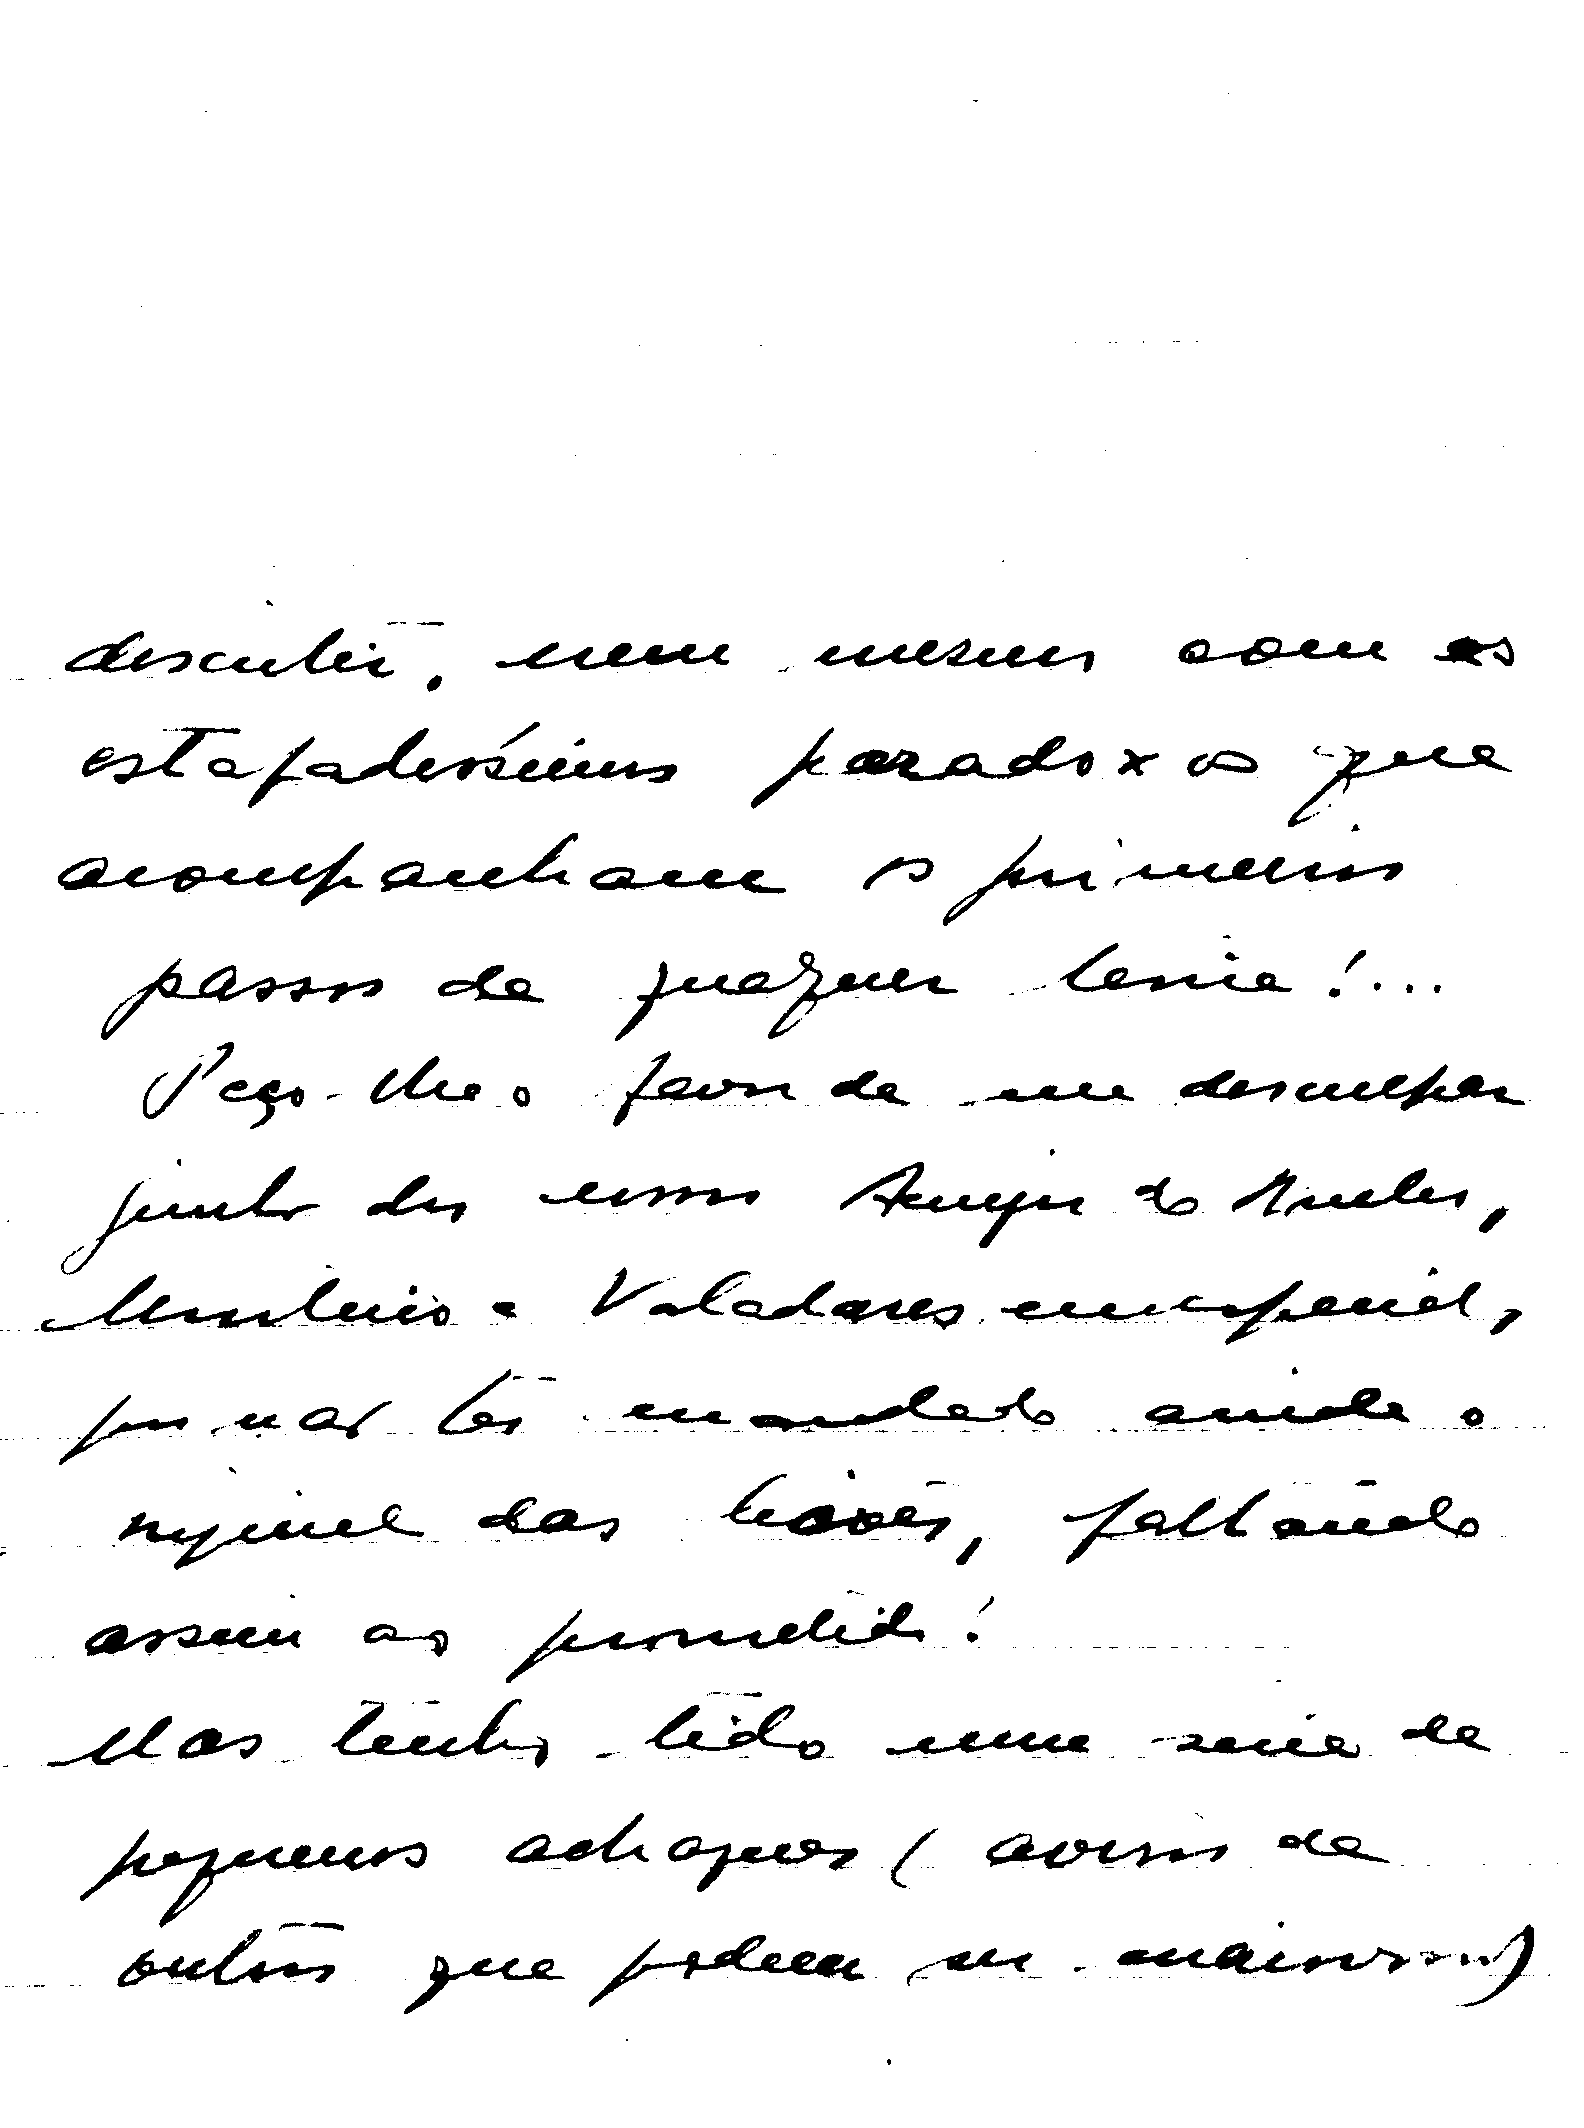 discutir, nem mesmo com os
estafadissimos paradoxos que
acompanham os primeiros
passos de qualquer teoria!...
Peço-lhe o favor de me desculpar
junto dos nossos Araujo de
Monteiro e Valadares em especial,
por não ter mandado ainda o
original das lições, faltando
assim ao prometido!
Mas tenho tido uma serie de
pequenos achaques (avisos de
outros que podem ser maiores)